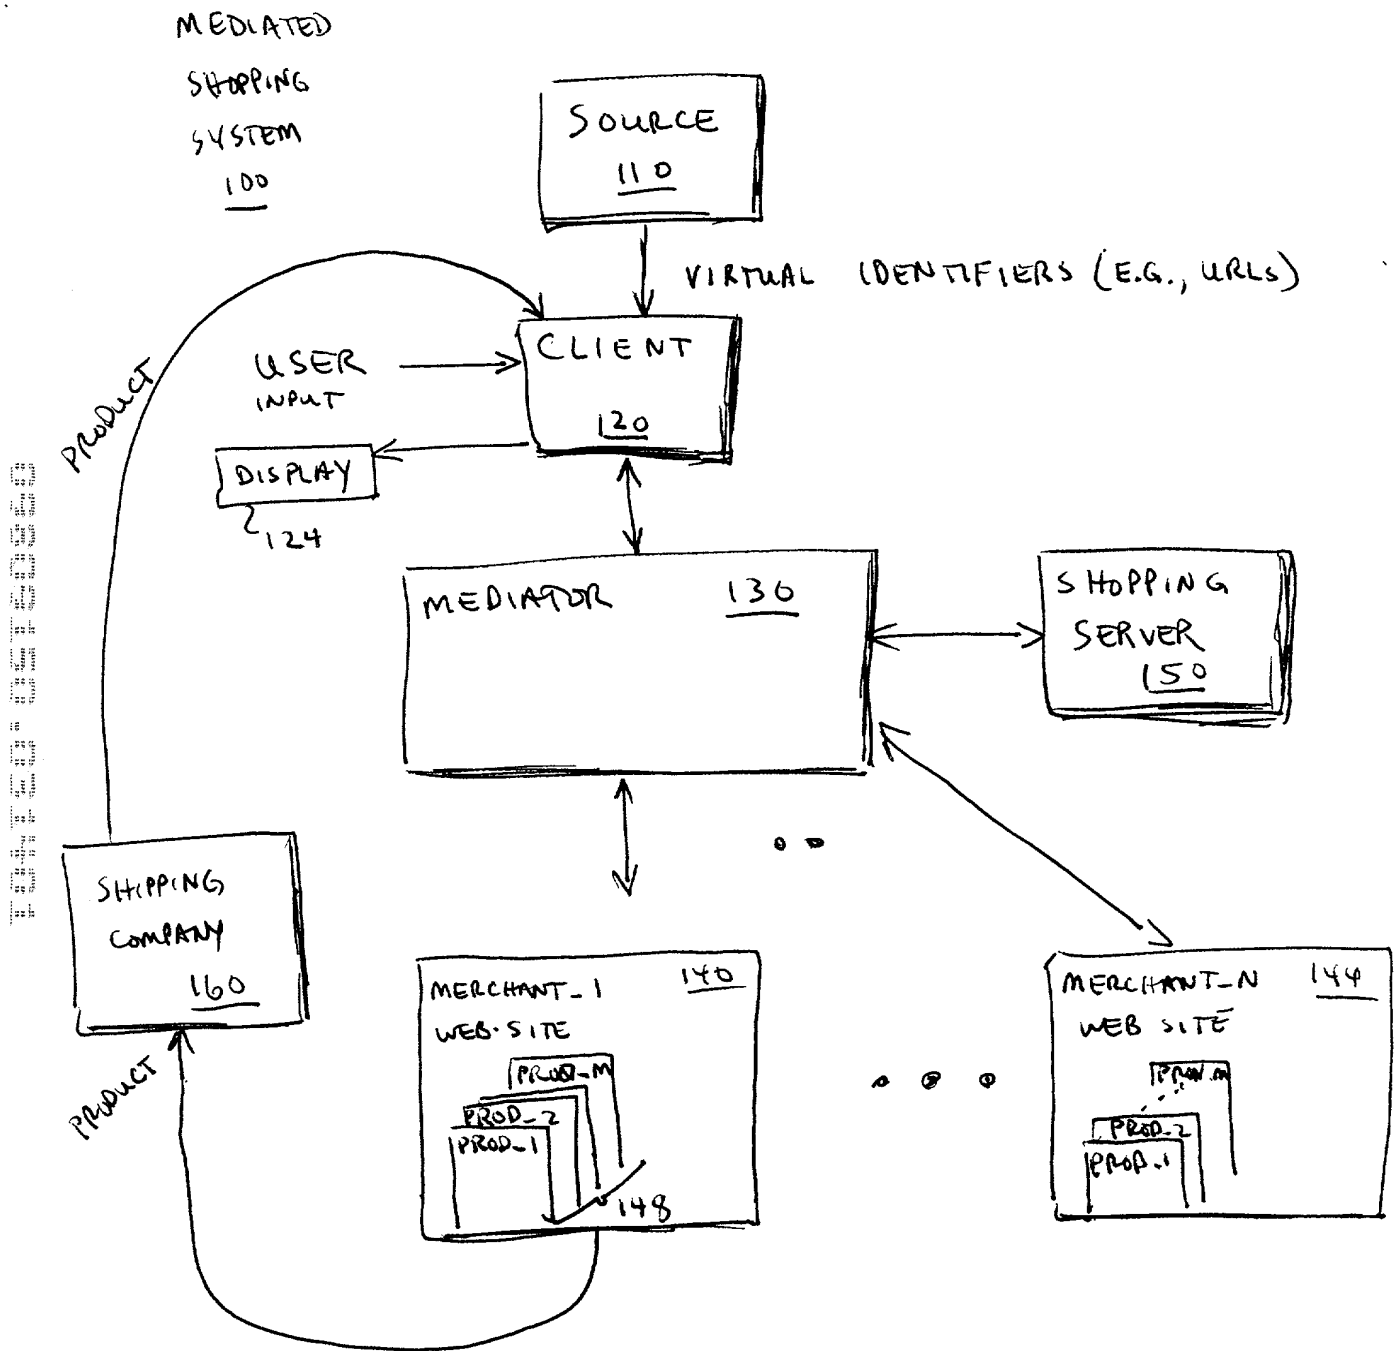 MEDIATED
SHOPPING
SYSTEM
100
SOURCE
110
VIRTUAL IDENTIFIERS (E.G., URLS)
CLIENT
120
USER
INPUT
DISPLAY
124
PRODUCT
MEDIATOR 130
SHOPPING
SERVER
150
SHIPPING
COMPANY
160
PRODUCT
MERCHANT_1 140
WEB-SITE
PROD_M
PROD_2
PROD_1
148
MERCHANT_N 144
WEB SITE
PROD_M
PROD_2
PROD_1